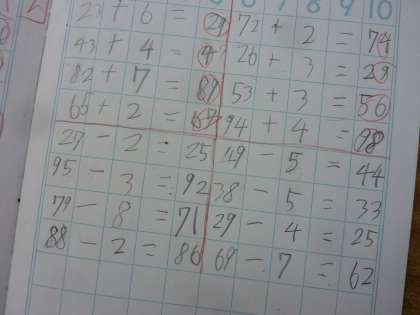 8 9 10
23 + 6 = 29 72 + 2 = 74
43 + 4 = 47 26 + 3 = 29
82 + 7 = 89 53 + 3 = 56
65 + 2 = 67 94 + 4 = 98
27 - 2 = 25 49 - 5 = 44
95 - 3 = 92 38 - 5 = 33
79 - 8 = 71 29 - 4 = 25
88 - 2 = 86 69 - 7 = 62